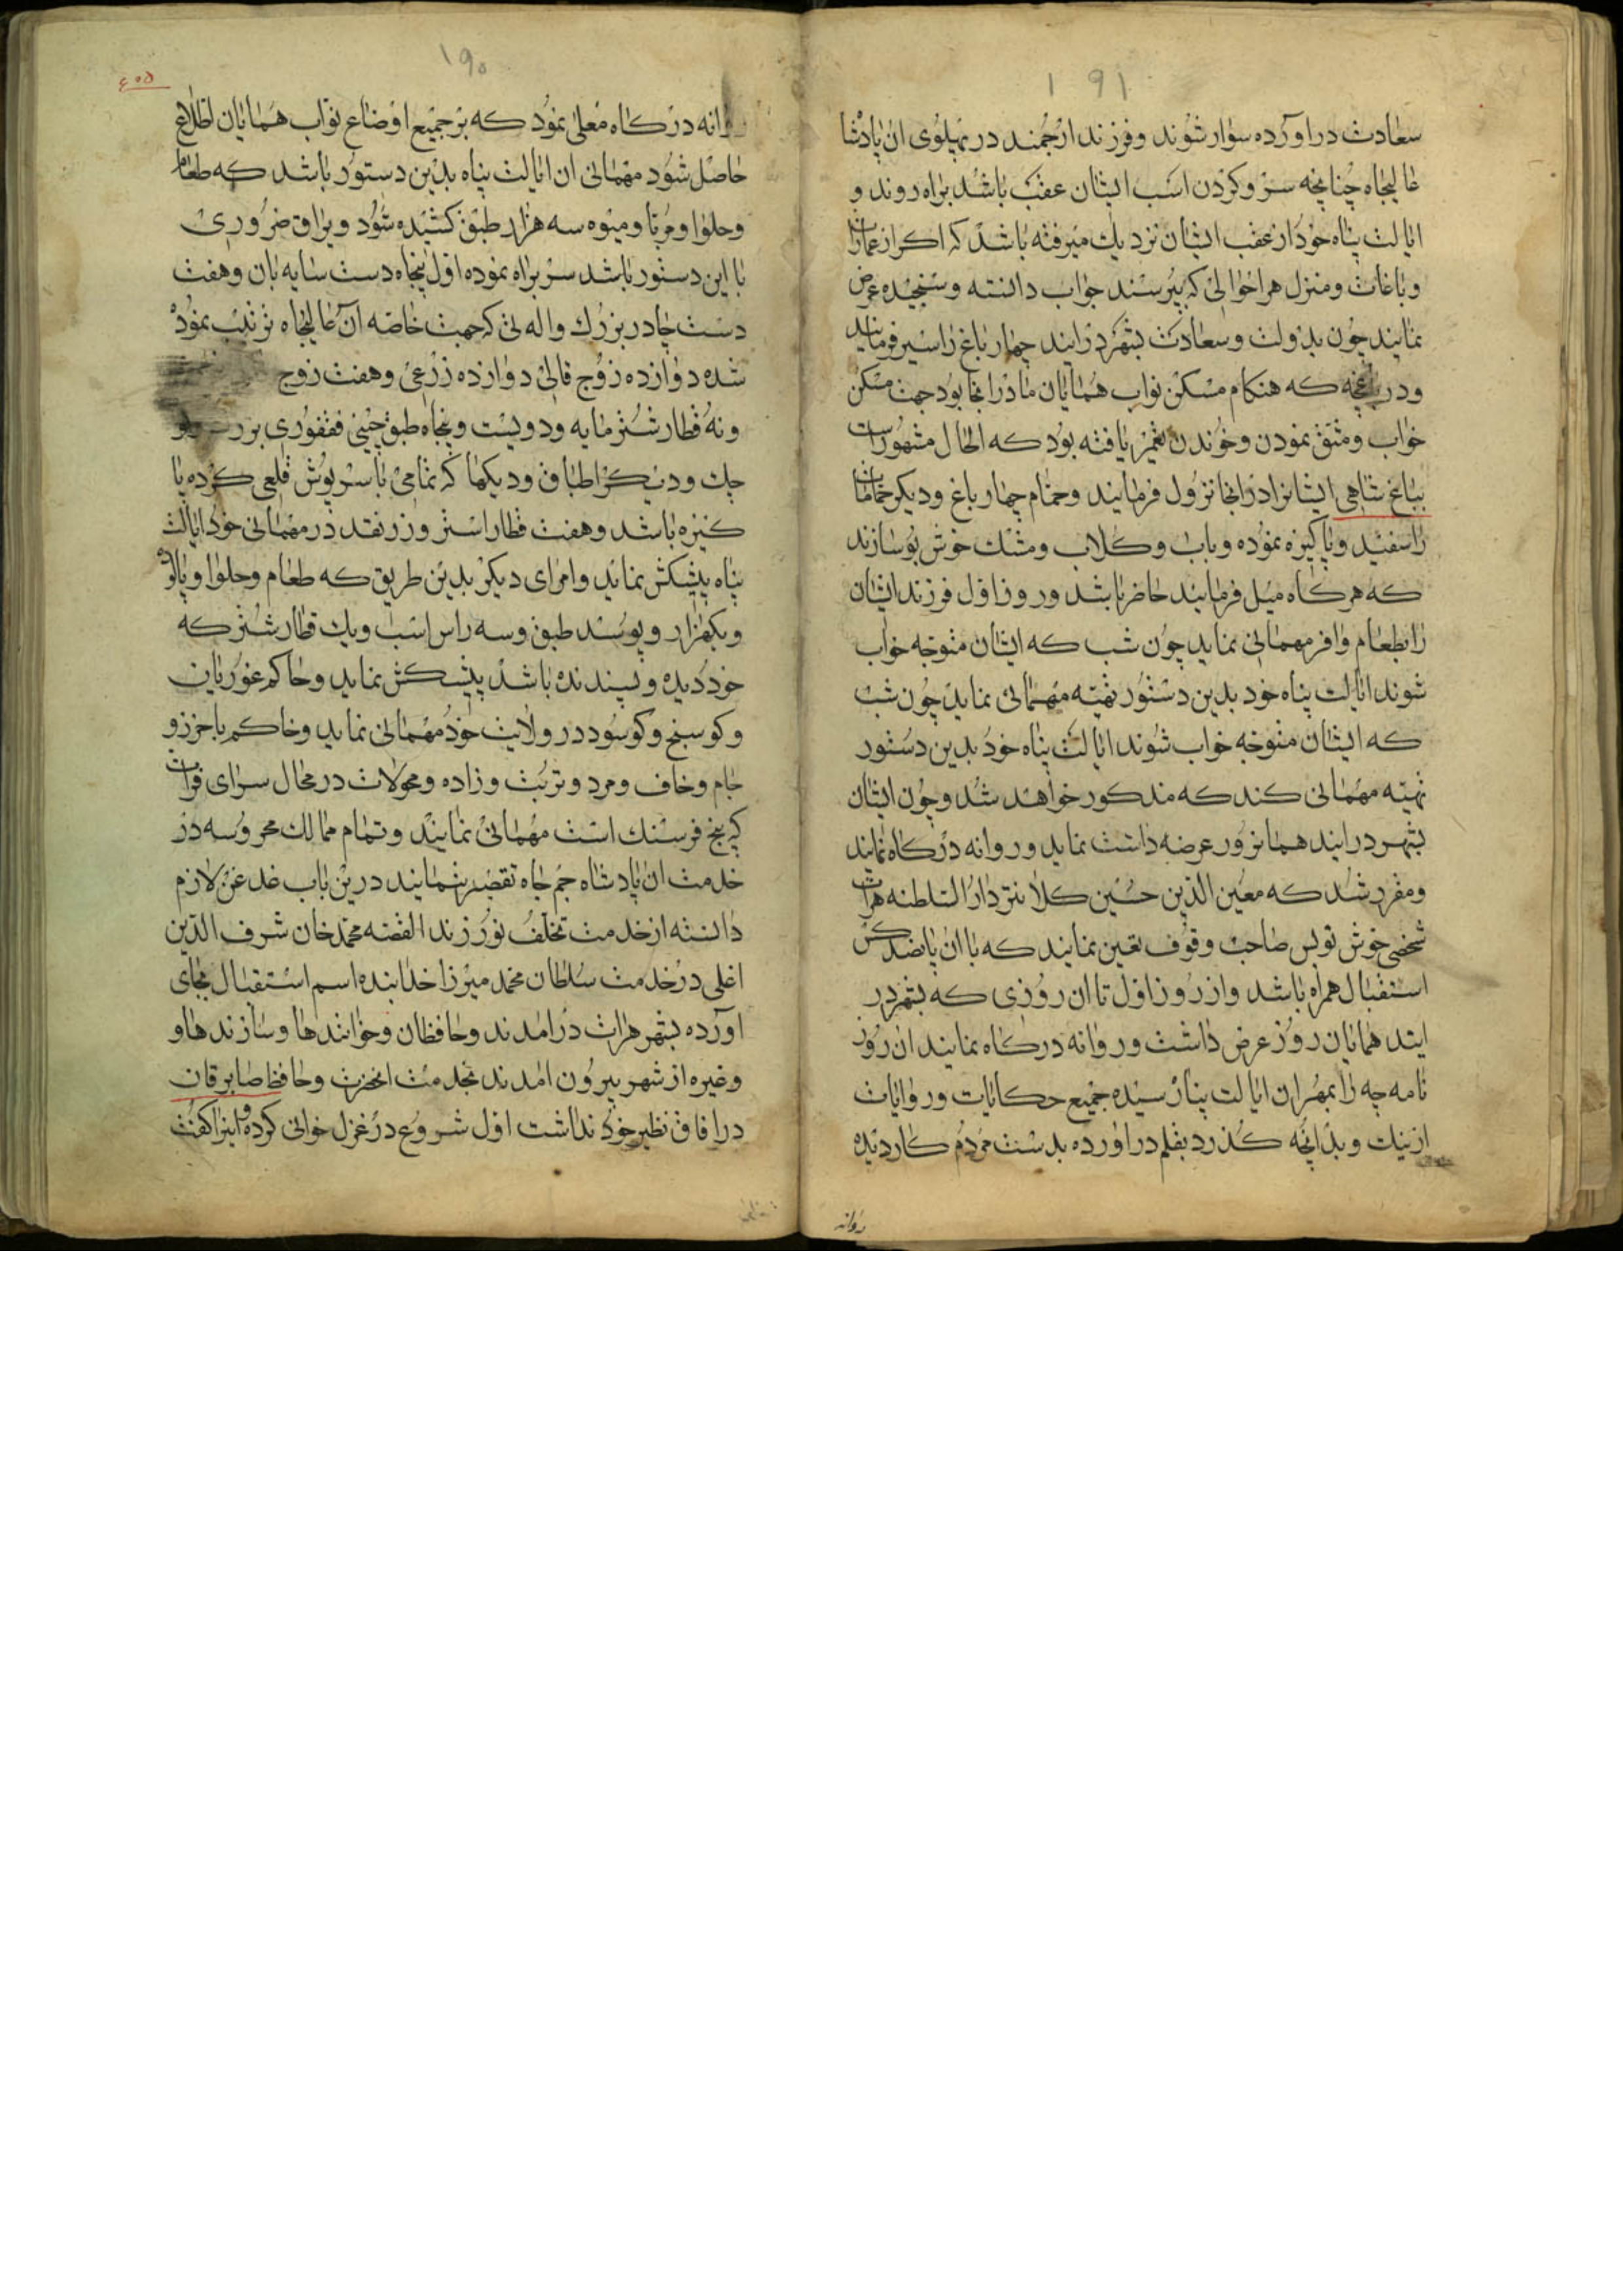 ۱۹۱
سعادت دراورده سوار شوند وفرزند ارجمند در پهلوی ان پادشا
عالیجاه چنانچه سر وکردن اسب ایشان عقب باشد براه روند و
ایالت پناه خود از عقب ایشان نزدیك میرفته باشد که اکر از عمارات
وباغات ومنزل هر احوالی که پرسند جواب دانسته وسنجیده عرض
نمایند چون بدولت وسعادت بشهر درایند چهار باغ را سیر فرمایند
ودر باغچه که هنکام مسکن نواب همایان ما در انجا بود جهت مسکن
خواب ومشق نمودن وخوندن تعمیر یافته بود که الحال مشهورست
بباغ شاهی ایشانرا در انجا نزول فرمایند وحمام چهار باغ ودیکر حمامات
را سفید وپاکیزه نموده وباب وکلاب ومشك خوش بو سازند
که هرکاه میل فرمایند حاضر باشد وروز اول فرزند ایشان
را بطعام وافر مهمانی نماید چون شب که ایشان متوجه خواب
شوند ایالت پناه خود بدین دستور تهیه مهمانی نماید چون شب
که ایشان متوجه خواب شوند ایالت پناه خود بدین دستور
تهیه مهمانی کند که مذکور خواهد شد وچون ایشان
بشهر درایند همانروز عرضه داشت نماید وروانه درکاه نمایند
ومقرر شد که معین الدین حسین کلانتر دار السلطنه هرات
شخصی خوش نویس صاحب وقوف تعین نمایند که با ان پانصد کس
استقبال همراه باشد واز روز اول تا ان روزی که بشهر در
ایند همایان روز عرض داشت وروانه درکاه نمایند ان روز
نامه چه را بمهر ان ایالت پناه رسیده جمیع حکایات وروایات
از نیك وبد انچه کذرد بقلم دراورده بدست مردم کاردیده
روانه
۱۹۰
۴۰۵
روانه درکاه معلی نمود که بر جمیع اوضاع نواب همایان اطلاع
حاصل شود مهمانی ان ایالت پناه بدین دستور باشد که طعام
وحلوا ومربا ومیوه سه هزار طبق کشیده شود ویراق ضروری
با این دستور باشد سر براه نموده اول پنجاه دست سایه بان وهفت
دست چادر بزرك واله نی که جهت خاصه ان عالیجاه ترتیب نموده
شده دوازده زوج قالی دوازده زرعی وهفت زوج
ونه قطار شتر مایه ودویست وپنجاه طبق چینی فغفوری بزرك و
چك ودیکر اطباق ودیکها که تمامی با سرپوش قلعی کرده پا
کیزه باشد وهفت قطار استر وزر نقد در مهمانی خود ایالت
پناه پیشکش نماید وامرای دیکر بدین طریق که طعام وحلوا وپالوده
ویکهزار وپوسند طبق وسه راس اسب ویك قطار شتر که
خود دیده وپسندنده باشد پیشکش نماید وحاکم غوریان
وکوسنج وکوسود در ولایت خود مهمانی نماید وحاکم باخرزو
جام وخاف ومرد وتربت وزاده ومحولات در محال سرای فرات
که پنج فرسنك است مهمانی نمایند وتمام ممالك محروسه در
خدمت ان پادشاه جم جاه تقصیر ننمایند درین باب غدغن لازم
دانسته از خدمت تخلف نورزند القصه محمد خان شرف الدین
اغلی در خدمت سلطان محمد میرزا خدابنده اسم استقبال بجای
اورده بشهر هرات درامدند وحافظان وخوانندها وسازندهاو
وغیره از شهر بیرون امدند بخدمت انحضرت وحافظ صابر قان
در افاق نظیر خود نداشت اول شروع در غزل خوانی کرده